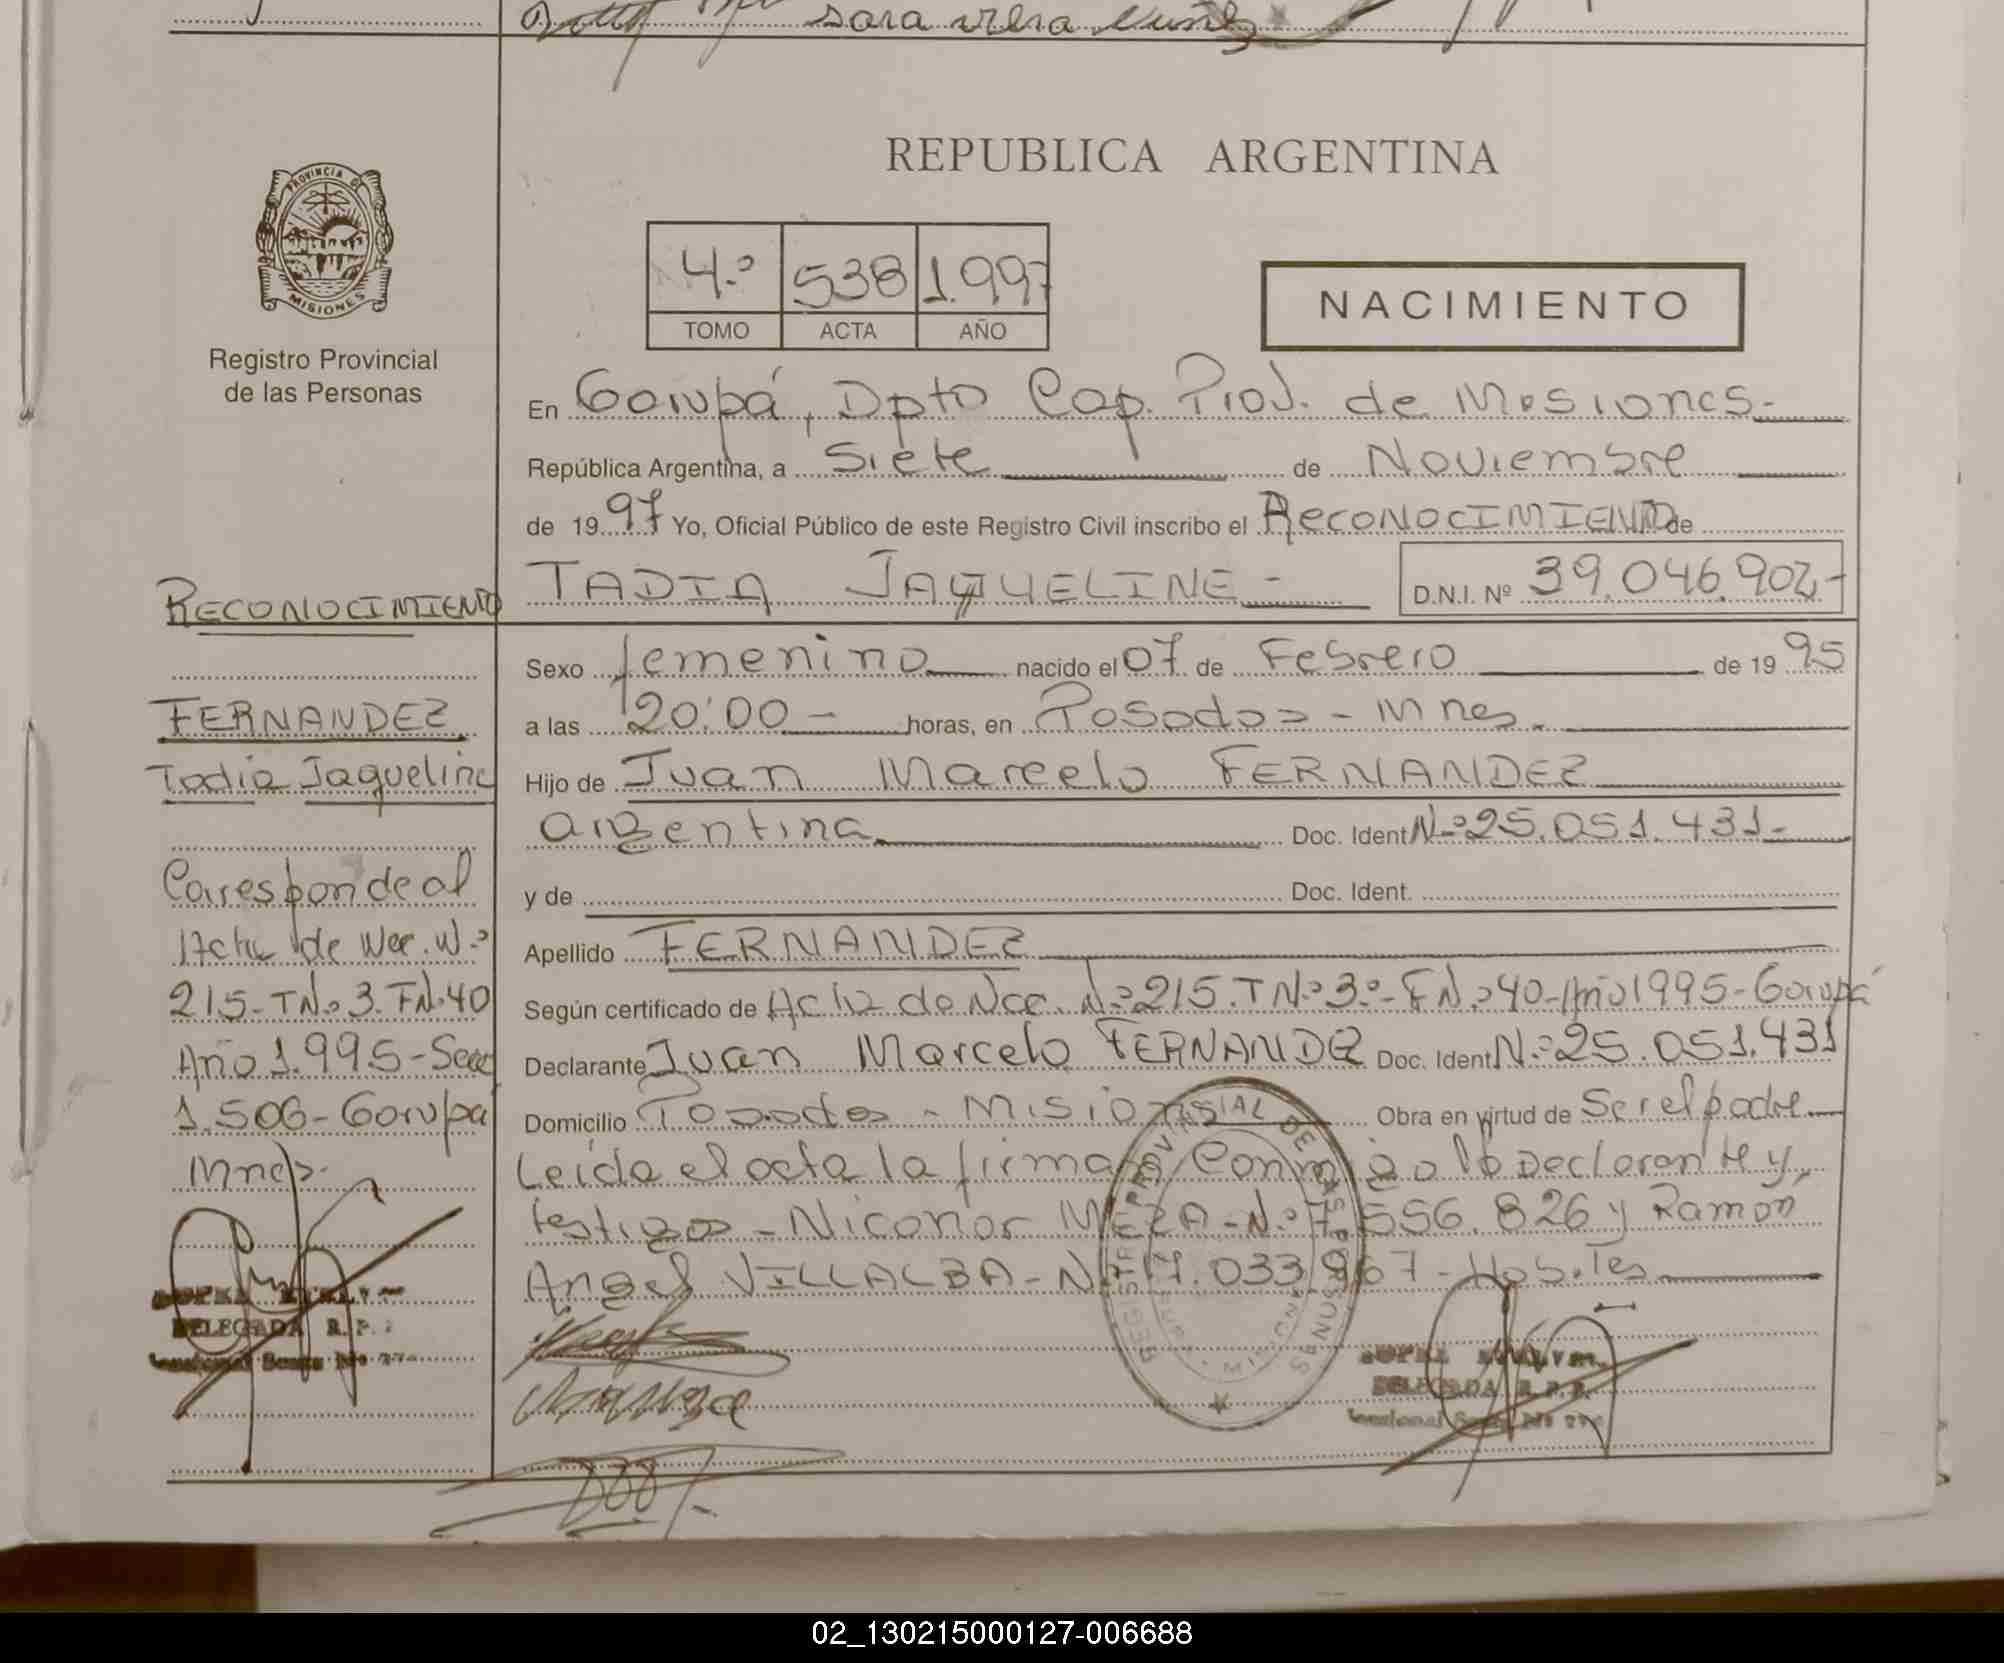 Sara Vera Nuñez
REPUBLICA ARGENTINA
PROVINCIA DE
MISIONES
Registro Provincial
de las Personas
4.º 538 1.997
TOMO ACTA AÑO
NACIMIENTO
En Garupá, Dpto Cap. Prov. de Misiones.-
República Argentina, a Siete de Noviembre
de 1997 Yo, Oficial Público de este Registro Civil inscribo el RECONOCIMIENTO de
TADIA JAQUELINE - D.N.I. Nº 39.046.902,-
RECONOCIMIENTO
Sexo femenino nacido el 07 de Febrero de 1995
FERNANDEZ
a las 20:00 - horas, en Posadas - Mnes.
Tadia Jaqueline
Hijo de Juan Marcelo FERNANDEZ
argentina Doc. Ident Nº 25.051.431-
Corresponde al
y de Doc. Ident.
Acta de Nac. N.º
Apellido FERNANDEZ
215-TN.º3.FN.º40
Según certificado de Acta de Nac. N.º 215.TN.º3.º-FN.º40-Año1995-Garupá
Año 1.995-Secc
Declarante Juan Marcelo FERNANDEZ Doc. Ident N.º 25.051.431
1.506-Garupá
Domicilio Posadas - Misiones Obra en virtud de Ser el padre
Mnes.
Leída el acta la firman Conmigo la Declarante y
testigos - Nicanor MEZA - N.º 7.556.826 y Ramón
Angel VILLALBA - Nº 17.033.967 - Hab. Tes
DELEGADA R.P.P.
DELEGADA R.P.P.
02_130215000127-006688